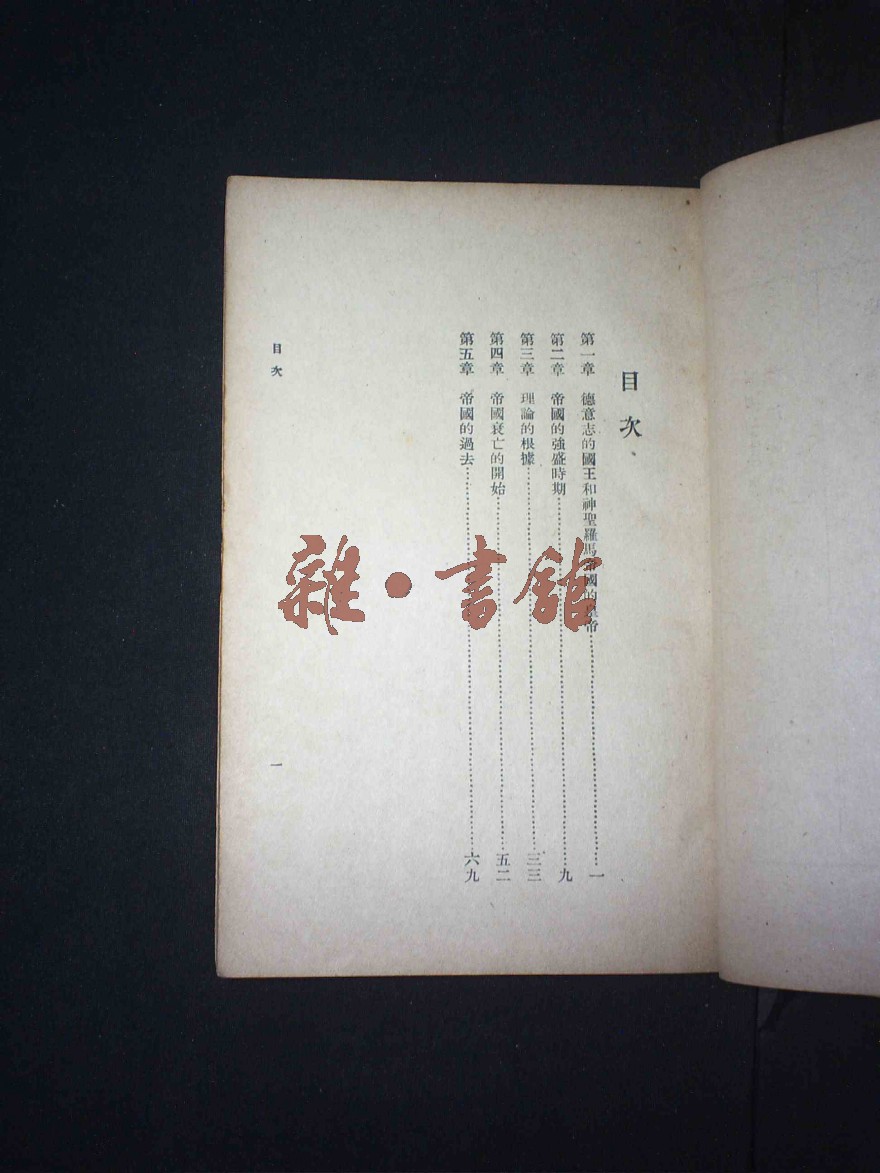 目次
第一章　德意志的國王和神聖羅馬帝國的皇帝……一
第二章　帝國的強盛時期……九
第三章　理論的根據……三三
第四章　帝國衰亡的開始……五二
第五章　帝國的過去……六九
目次
一
雜·書館